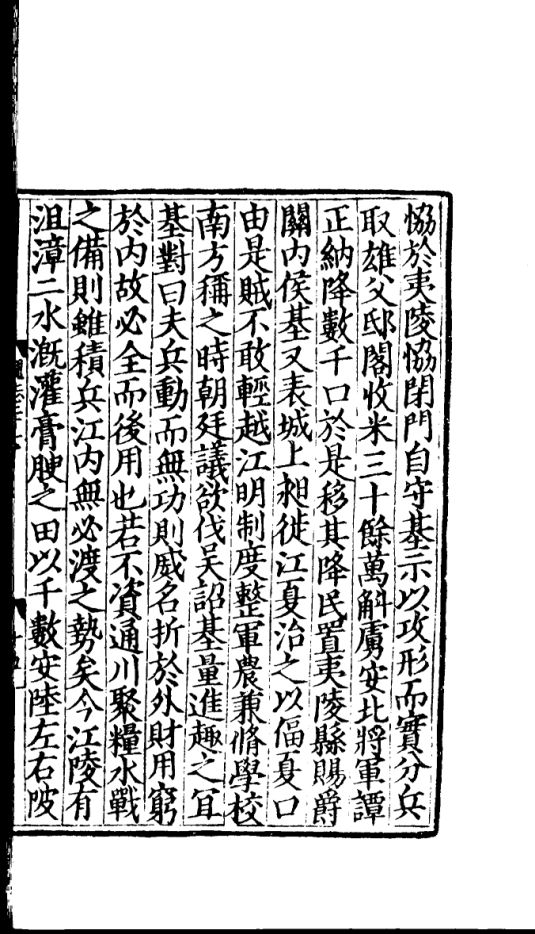 恊於夷陵恊閉門自守基示以攻形而實分兵
取雄父邸閣收米三十餘萬斛虜安北將軍譚
正納降數千口於是移其降民置夷陵縣賜爵
關內侯基又表城上昶徙江夏治之以偪夏口
由是賊不敢輕越江明制度整軍農兼脩學校
南方稱之時朝廷議欲伐吳詔基量進趣之宜
基對曰夫兵動而無功則威名折於外財用窮
於內故必全而後用也若不資通川聚糧水戰
之備則雖積兵江內無必渡之勢矣今江陵有
沮漳二水漑灌膏腴之田以千數安陸左右陂